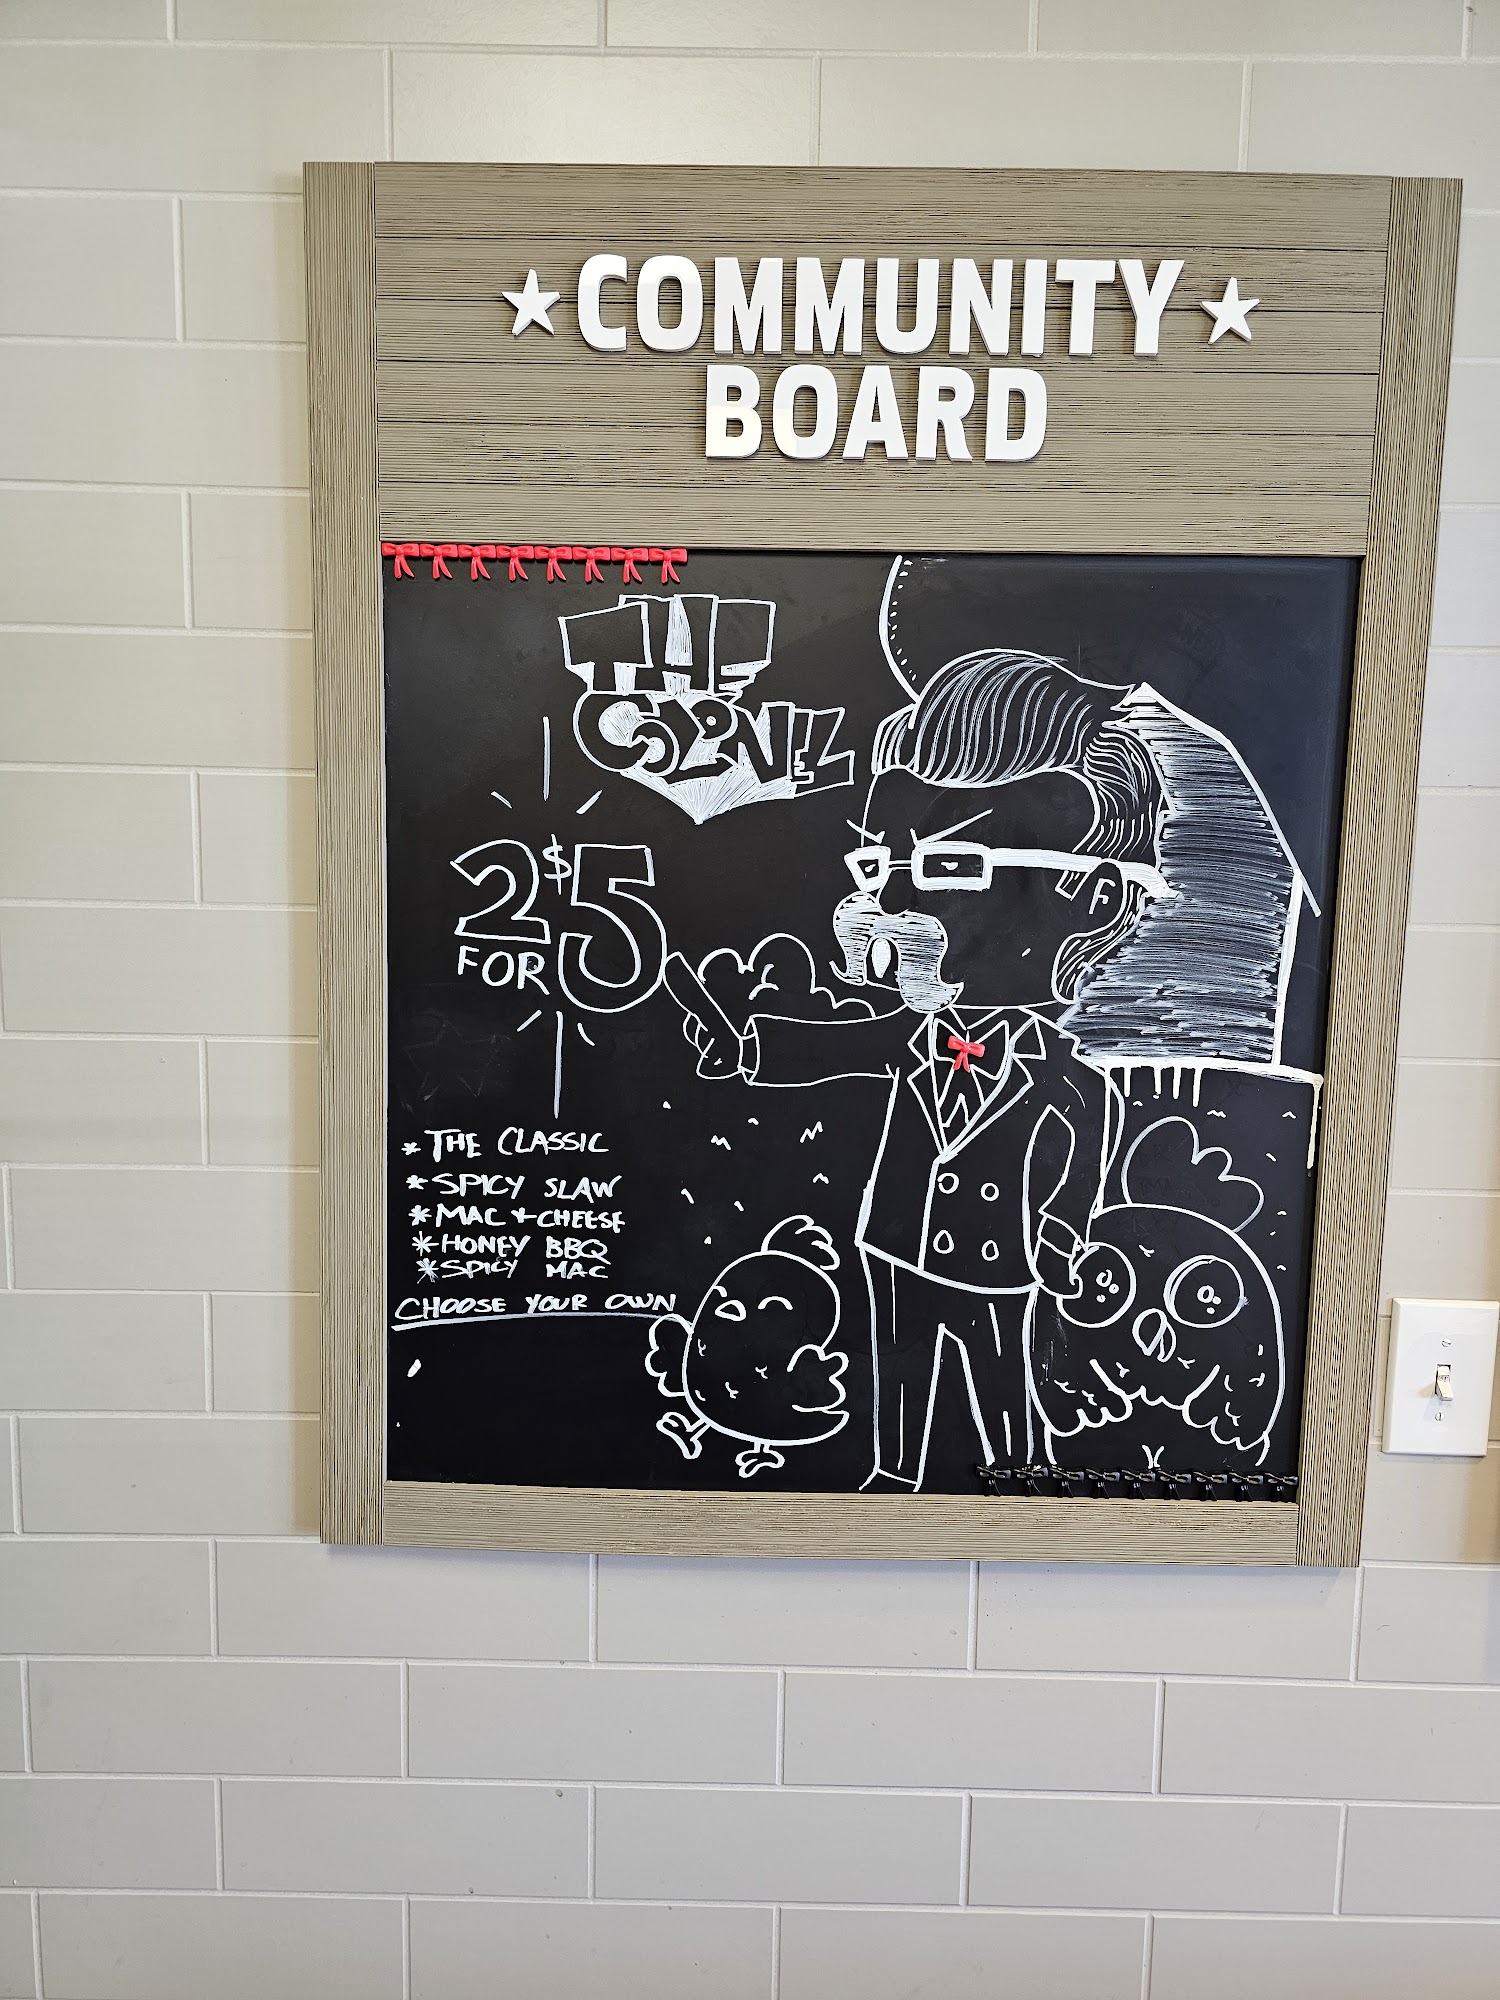 ★COMMUNITY★
BOARD
THE
COLONEL
2 $5
FOR
* THE CLASSIC
* SPICY SLAW
* MAC + CHEESE
* HONEY BBQ
* SPICY MAC
CHOOSE YOUR OWN